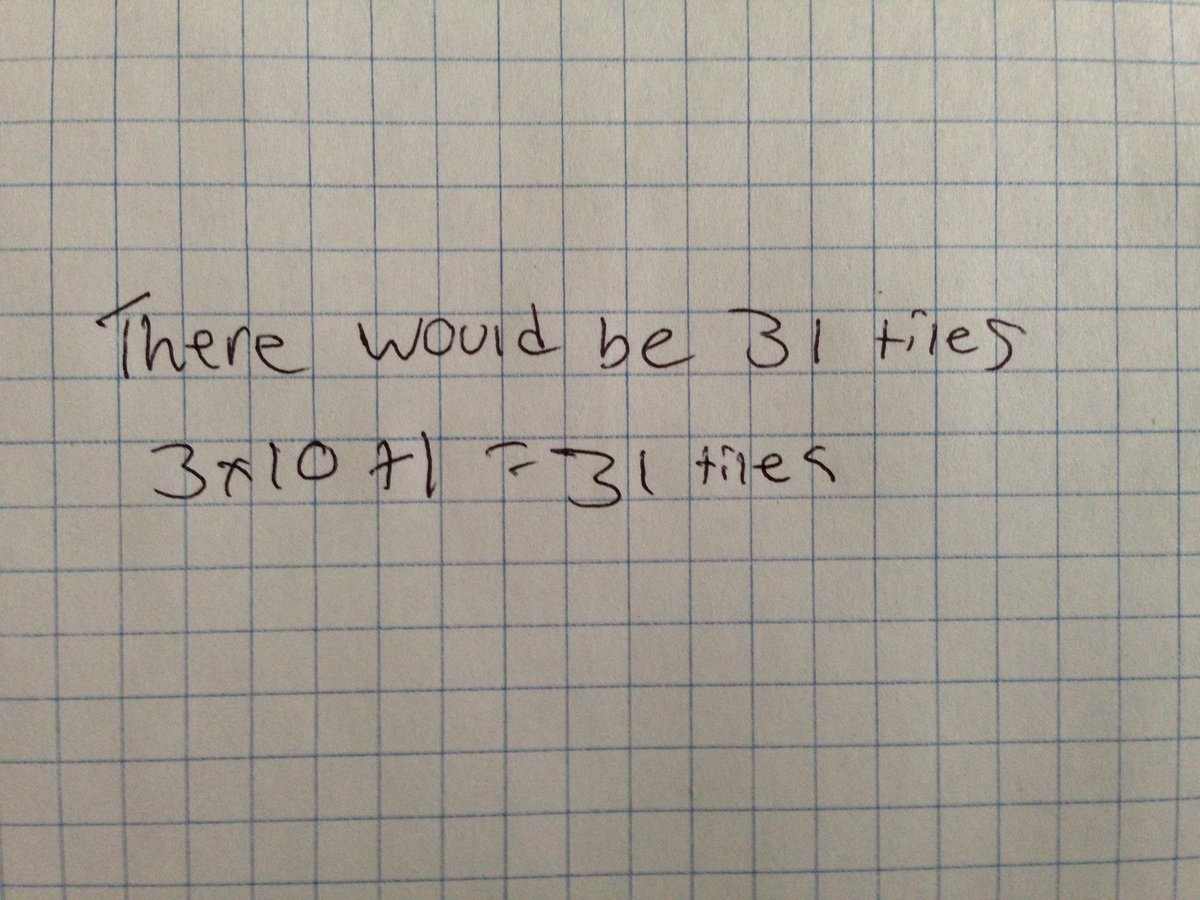 There would be 31 tiles
3x10 +1 = 31 tiles